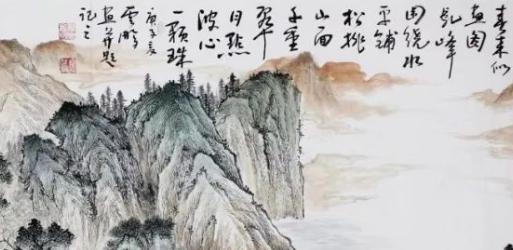 春来似
画图
乱峰
围绕水
平铺
松排
山面
千重
翠
月點
波心
一顆珠
庚子夏
雲鵬
画并題
記之